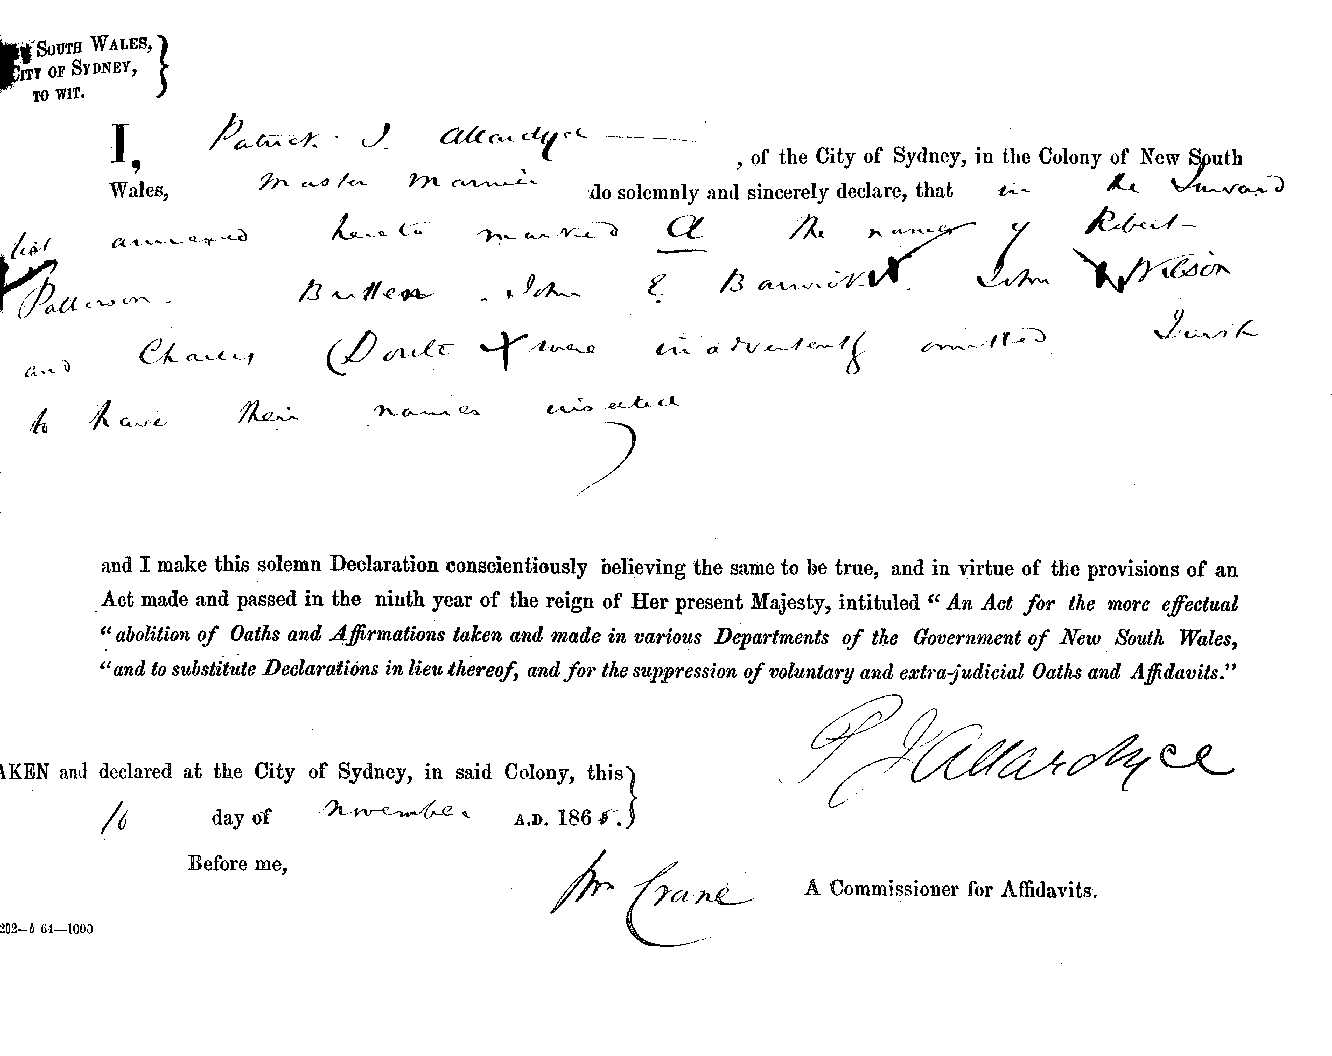 SOUTH WALES,
CITY OF SYDNEY,
TO WIT.
I, Patrick J. Allardyce, of the City of Sydney, in the Colony of New South
Wales, Master Mariner do solemnly and sincerely declare, that in the Inward
list annexed hereto marked A the names of Robert
Patterson. Butten. John E. Barwick. John Wilson
and Charles were inadvertently omitted I wish
to have their names inserted
and I make this solemn Declaration conscientiously believing the same to be true, and in virtue of the provisions of an
Act made and passed in the ninth year of the reign of Her present Majesty, intituled “An Act for the more effectual
“abolition of Oaths and Affirmations taken and made in various Departments of the Government of New South Wales,
“and to substitute Declarations in lieu thereof, and for the suppression of voluntary and extra-judicial Oaths and Affidavits.”
P J Allardyce
AKEN and declared at the City of Sydney, in said Colony, this
16 day of November A.D. 1865.
Before me,
Wm Crane A Commissioner for Affidavits.
202—b 64—1000